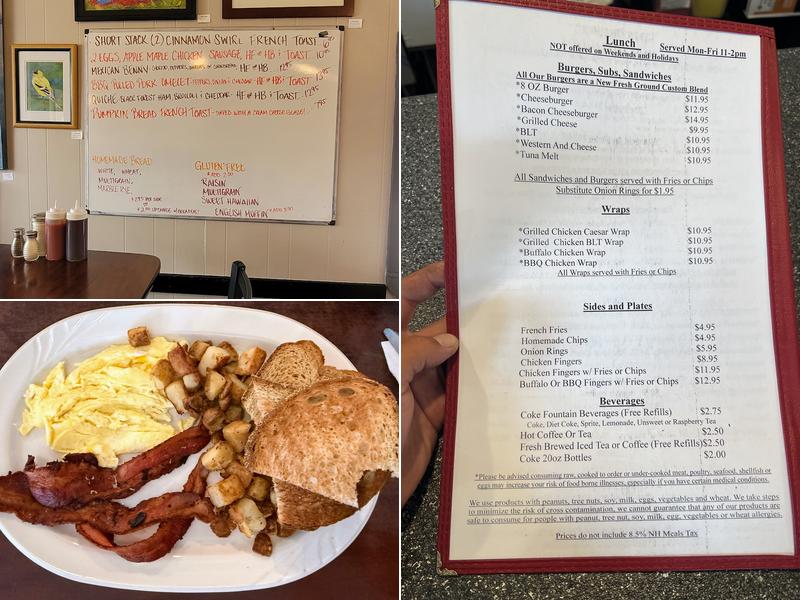 SHORT STACK (2) CINNAMON SWIRL FRENCH TOAST
2 EGGS, APPLE MAPLE CHICKEN SAUSAGE, HF OR HB & TOAST
MEXICAN BENNY HF OR HB
BBQ PULLED PORK OMELET - PEPPERS, ONION & CHEDDAR - HF OR HB & TOAST
QUICHE - BLACK FOREST HAM, BROCCOLI & CHEDDAR - HF OR HB & TOAST
PUMPKIN BREAD FRENCH TOAST - SERVED WITH A CREAM CHEESE GLAZE!
HOMEMADE BREAD
WHITE, WHEAT,
MULTIGRAIN,
MARBLE RYE,
GLUTEN FREE
RAISIN
MULTIGRAIN
SWEET HAWAIIAN
ENGLISH MUFFIN
Lunch Served Mon-Fri 11-2pm
NOT offered on Weekends and Holidays
Burgers, Subs, Sandwiches
All Our Burgers are a New Fresh Ground Custom Blend
*8 OZ Burger $11.95
*Cheeseburger $12.95
*Bacon Cheeseburger $14.95
*Grilled Cheese $9.95
*BLT $10.95
*Western And Cheese $10.95
*Tuna Melt $10.95
All Sandwiches and Burgers served with Fries or Chips
Substitute Onion Rings for $1.95
Wraps
*Grilled Chicken Caesar Wrap $10.95
*Grilled Chicken BLT Wrap $10.95
*Buffalo Chicken Wrap $10.95
*BBQ Chicken Wrap $10.95
All Wraps served with Fries or Chips
Sides and Plates
French Fries $4.95
Homemade Chips $4.95
Onion Rings $5.95
Chicken Fingers $8.95
Chicken Fingers w/ Fries or Chips $11.95
Buffalo Or BBQ Fingers w/ Fries or Chips $12.95
Beverages
Coke Fountain Beverages (Free Refills) $2.75
Coke, Diet Coke, Sprite, Lemonade, Unsweet or Raspberry Tea
Hot Coffee Or Tea $2.50
Fresh Brewed Iced Tea or Coffee (Free Refills) $2.50
Coke 20oz Bottles $2.00
*Please be advised consuming raw, cooked to order or under-cooked meat, poultry, seafood, shellfish or
eggs may increase your risk of food borne illness, especially if you have certain medical conditions.
We use products with peanuts, tree nuts, soy, milk, eggs, vegetables and wheat. We take steps
to minimize the risk of cross contamination, we cannot guarantee that any of our products are
safe to consume for people with peanut, tree nut, soy, milk, egg, vegetables or wheat allergies.
Prices do not include 8.5% NH Meals Tax